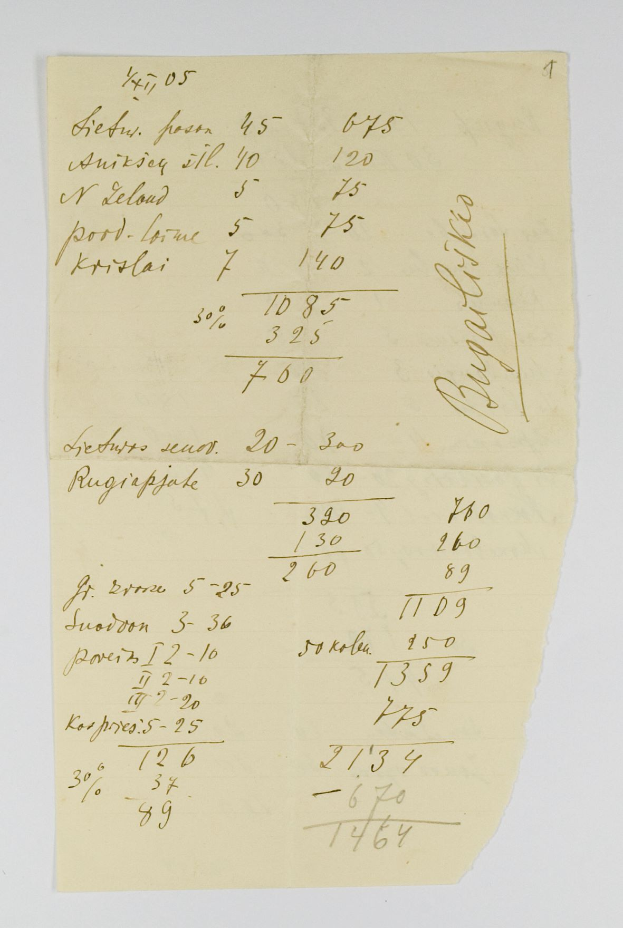 1/XII 05
1
Lietuv. pasak 45 675
Anikščų šil. 40 120
N Zeland 5 75
5 75
Krislai 7 140
1085
30% 325
760
Bugailiškio
Lietuvos senov. 20 - 300
Rugiapjute 30 20
320 760
130 260
260 89
Gr. 5 - 25
1109
3 - 36
50 kalen. 250
I 2 - 10
1359
II 2 - 10
III 2 - 20
775
5 - 25
126 2134
30% 37 — 670
89 1464